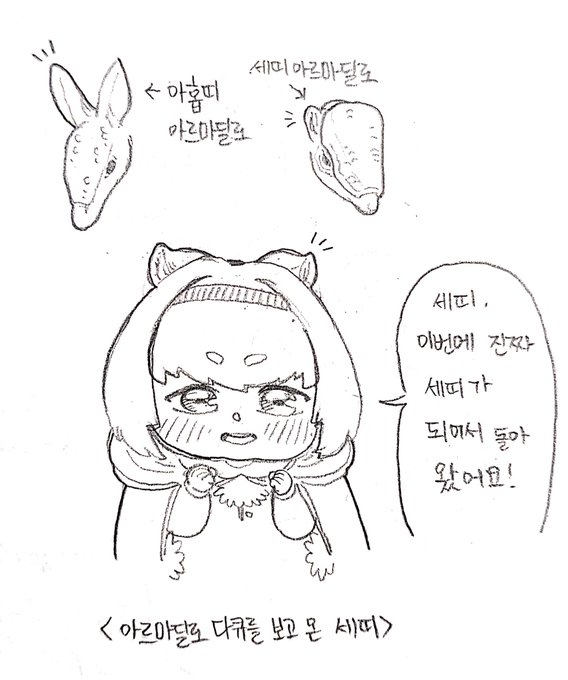 ← 아홉띠
아르마딜로
세띠 아르마딜로
세띠,
이번에 진짜
세띠가
되어서 돌아
왔어요!
<아르마딜로 다큐를 보고 온 세띠>